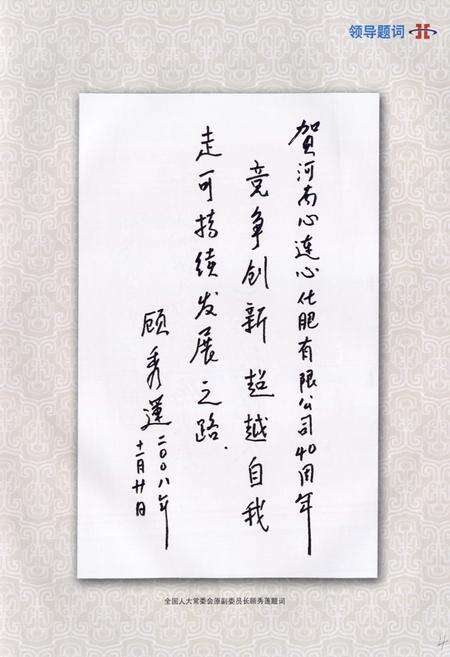 领导题词
贺河南心连心化肥有限公司40周年
竞争创新 超越自我
走可持续发展之路.
顾秀莲二〇〇八年
十一月廿日
全国人大常委会原副委员长顾秀莲题词
4